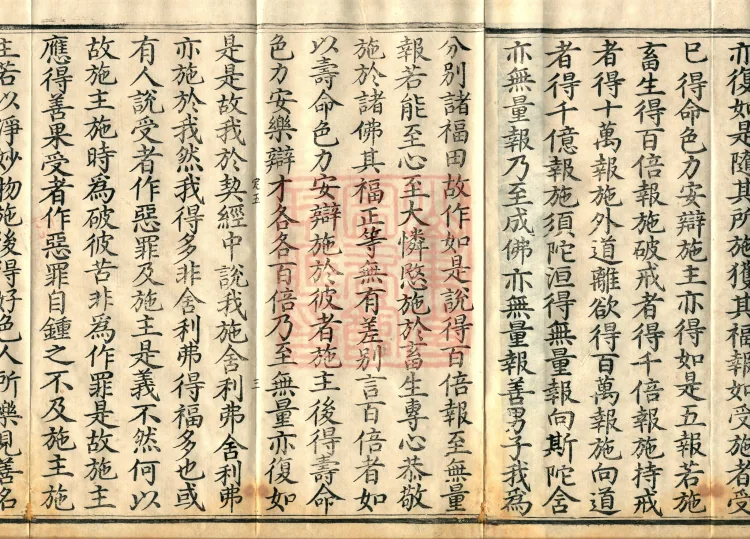 亦復如是隨其所施獲其福報如受施者受
已得命色力安辯施主亦得如是五報若施
畜生得百倍報施破戒者得千倍報施持戒
者得十萬報施外道離欲得百萬報施向道
者得千億報施須陀洹得無量報向斯陀含
亦無量報乃至成佛亦無量報善男子我為
分別諸福田故作如是說得百倍報至無量
報若能至心至大憐愍施於畜生專心恭敬
施於諸佛其福正等無有差別言百倍者如
以壽命色力安辯施於彼者施主後得壽命
色力安樂辯才各各百倍乃至無量亦復如
定五
三
是是故我於契經中說我施舍利弗舍利弗
亦施於我然我得多非舍利弗得福多也或
有人說受者作惡罪及施主是義不然何以
故施主施時為破彼苦非為作罪是故施主
應得善果受者作惡罪自鍾之不及施主施
主若以淨妙物施後得好色人所樂見善名